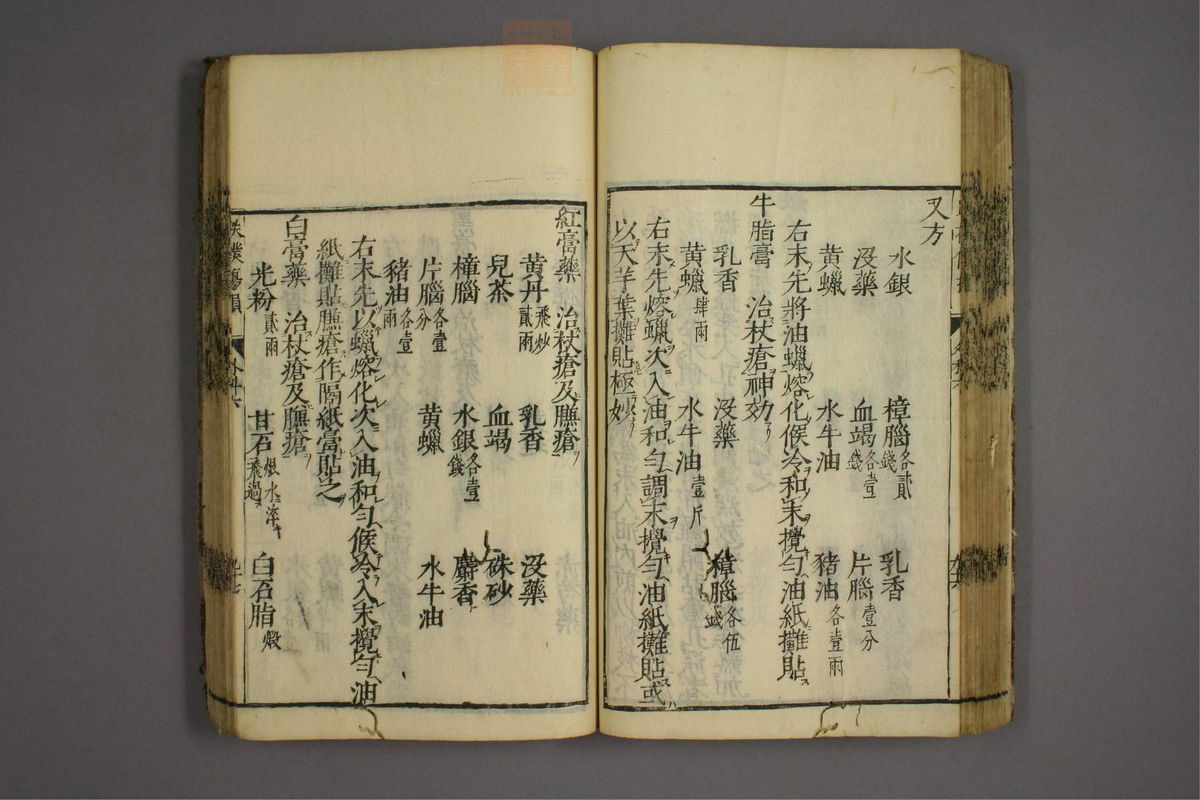 又方
水銀 樟腦各貳錢 乳香
沒藥 血竭各壹錢 片腦壹分
黃蠟 水牛油 豬油各壹兩
右末先將油蠟熔化候冷和末攪勻油紙攤貼
牛脂膏 治杖瘡神効
乳香 沒藥 樟腦各伍錢
黃蠟肆兩 水牛油壹斤
右末先熔蠟次入油和勻調末攪勻油紙攤貼或
以天芋葉攤貼極妙
紅膏藥 治杖瘡及臁瘡
黃丹飛炒貳兩 乳香 沒藥
兒茶 血竭 硃砂
樟腦 水銀各壹錢 麝香
片腦各壹分 黃蠟 水牛油
豬油各壹兩
右末先以蠟熔化次入油和勻候冷入末攪勻油
紙攤貼臁瘡作隔紙膏貼之
白膏藥 治杖瘡及臁瘡
光粉貳兩 甘石煅水淬飛過 白石脂煅
外科六